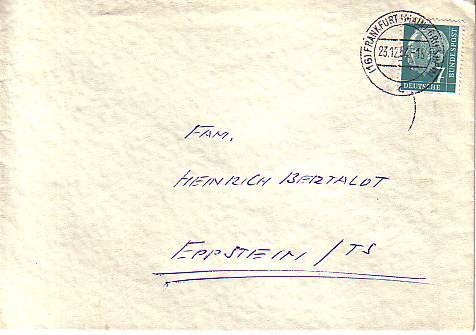 (16) FRANKFURT
23.12.
7
DEUTSCHE BUNDESPOST
FAM.
HEINRICH BERTALOT
EPPSTEIN / TS